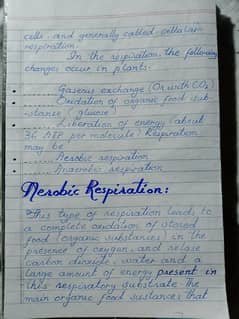 cells and generally called cellular
respiration.
In the respiration, the following
changes occur in plants.
Gaseous exchange (O2 with CO2)
Oxidation of organic food sub-
-stance (glucose)
Liberation of energy (about
36 ATP per molecule) Respiration
may be
Aerobic respiration
Anaerobic respiration
Aerobic Respiration:
This type of respiration leads to
a complete oxidation of stored
food (organic substances) in the
presence of oxygen and relase
carbon dioxide, water and a
large amount of energy present in
this respiratory substrate the
main organic food sustances that